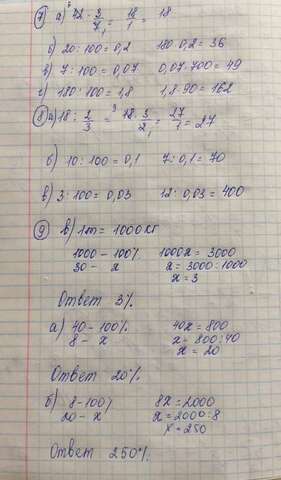 7) а) 42 · 3/7 = 18/1 = 18
б) 20 : 100 = 0,2 180 · 0,2 = 36
в) 7 : 100 = 0,07 0,07 · 700 = 49
г) 180 : 100 = 1,8 1,8 · 90 = 162
8) а) 18 : 2/3 = 18 · 3/2 = 27/1 = 27
б) 10 : 100 = 0,1 7 : 0,1 = 70
в) 3 : 100 = 0,03 12 : 0,03 = 400
9) в) 1т = 1000кг
1000 - 100% 1000х = 3000
30 - х х = 3000 : 1000
х = 3
Ответ 3%
а) 40 - 100% 40х = 800
8 - х х = 800 : 40
х = 20
Ответ 20%
б) 8 - 100% 8х = 2000
20 - х х = 2000 : 8
х = 250
Ответ 250%.